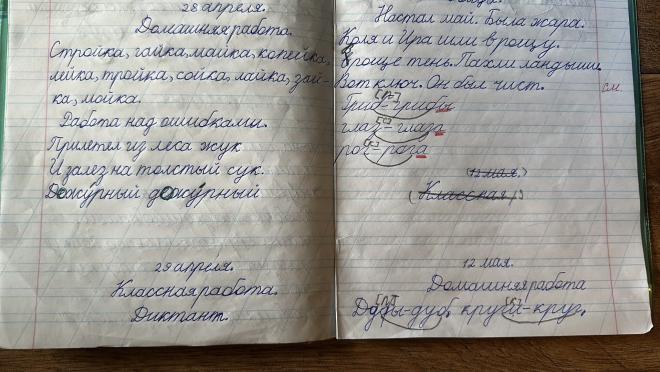 28 апреля.
Домашняя работа.
Стройка, гайка, майка, копейка,
лейка, тройка, сойка, лайка, зай-
ка, мойка.
Работа над ошибками.
Прилетел из леса жук
И залез на толстый сук.
Дежурный дежурный
29 апреля.
Классная работа.
Диктант.
Настал май. Была жара.
Коля и Ира шли в рощу.
В роще тень. Пахли ландыши.
Вот ключ. Он был чист.
см
[п]
Гриб-грибы
[с]
глаз-глаза
рог-рога
(12 мая.)
(Классная)
12 мая.
Домашняя работа
[п] [к]
Дубы-дуб, круги-круг.